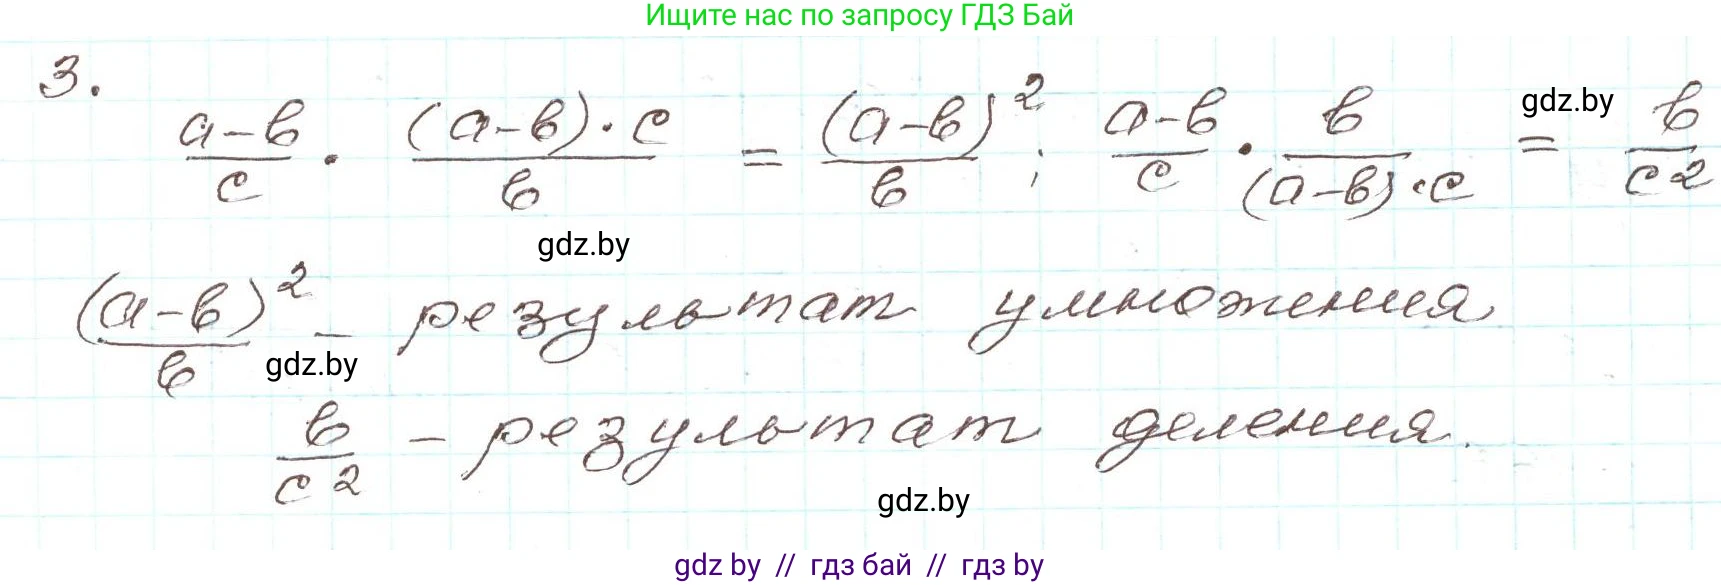 Ищите нас по запросу ГДЗ Бай
3.
(a-b)/c · ((a-b)·c)/b = (a-b)²/b ; (a-b)/c · b/((a-b)·c) = b/c²
gdz.by
gdz.by
(a-b)²/b - результат умножения
gdz.by
b/c² - результат деления.
gdz.by
gdz by // гдз бай // гдз by